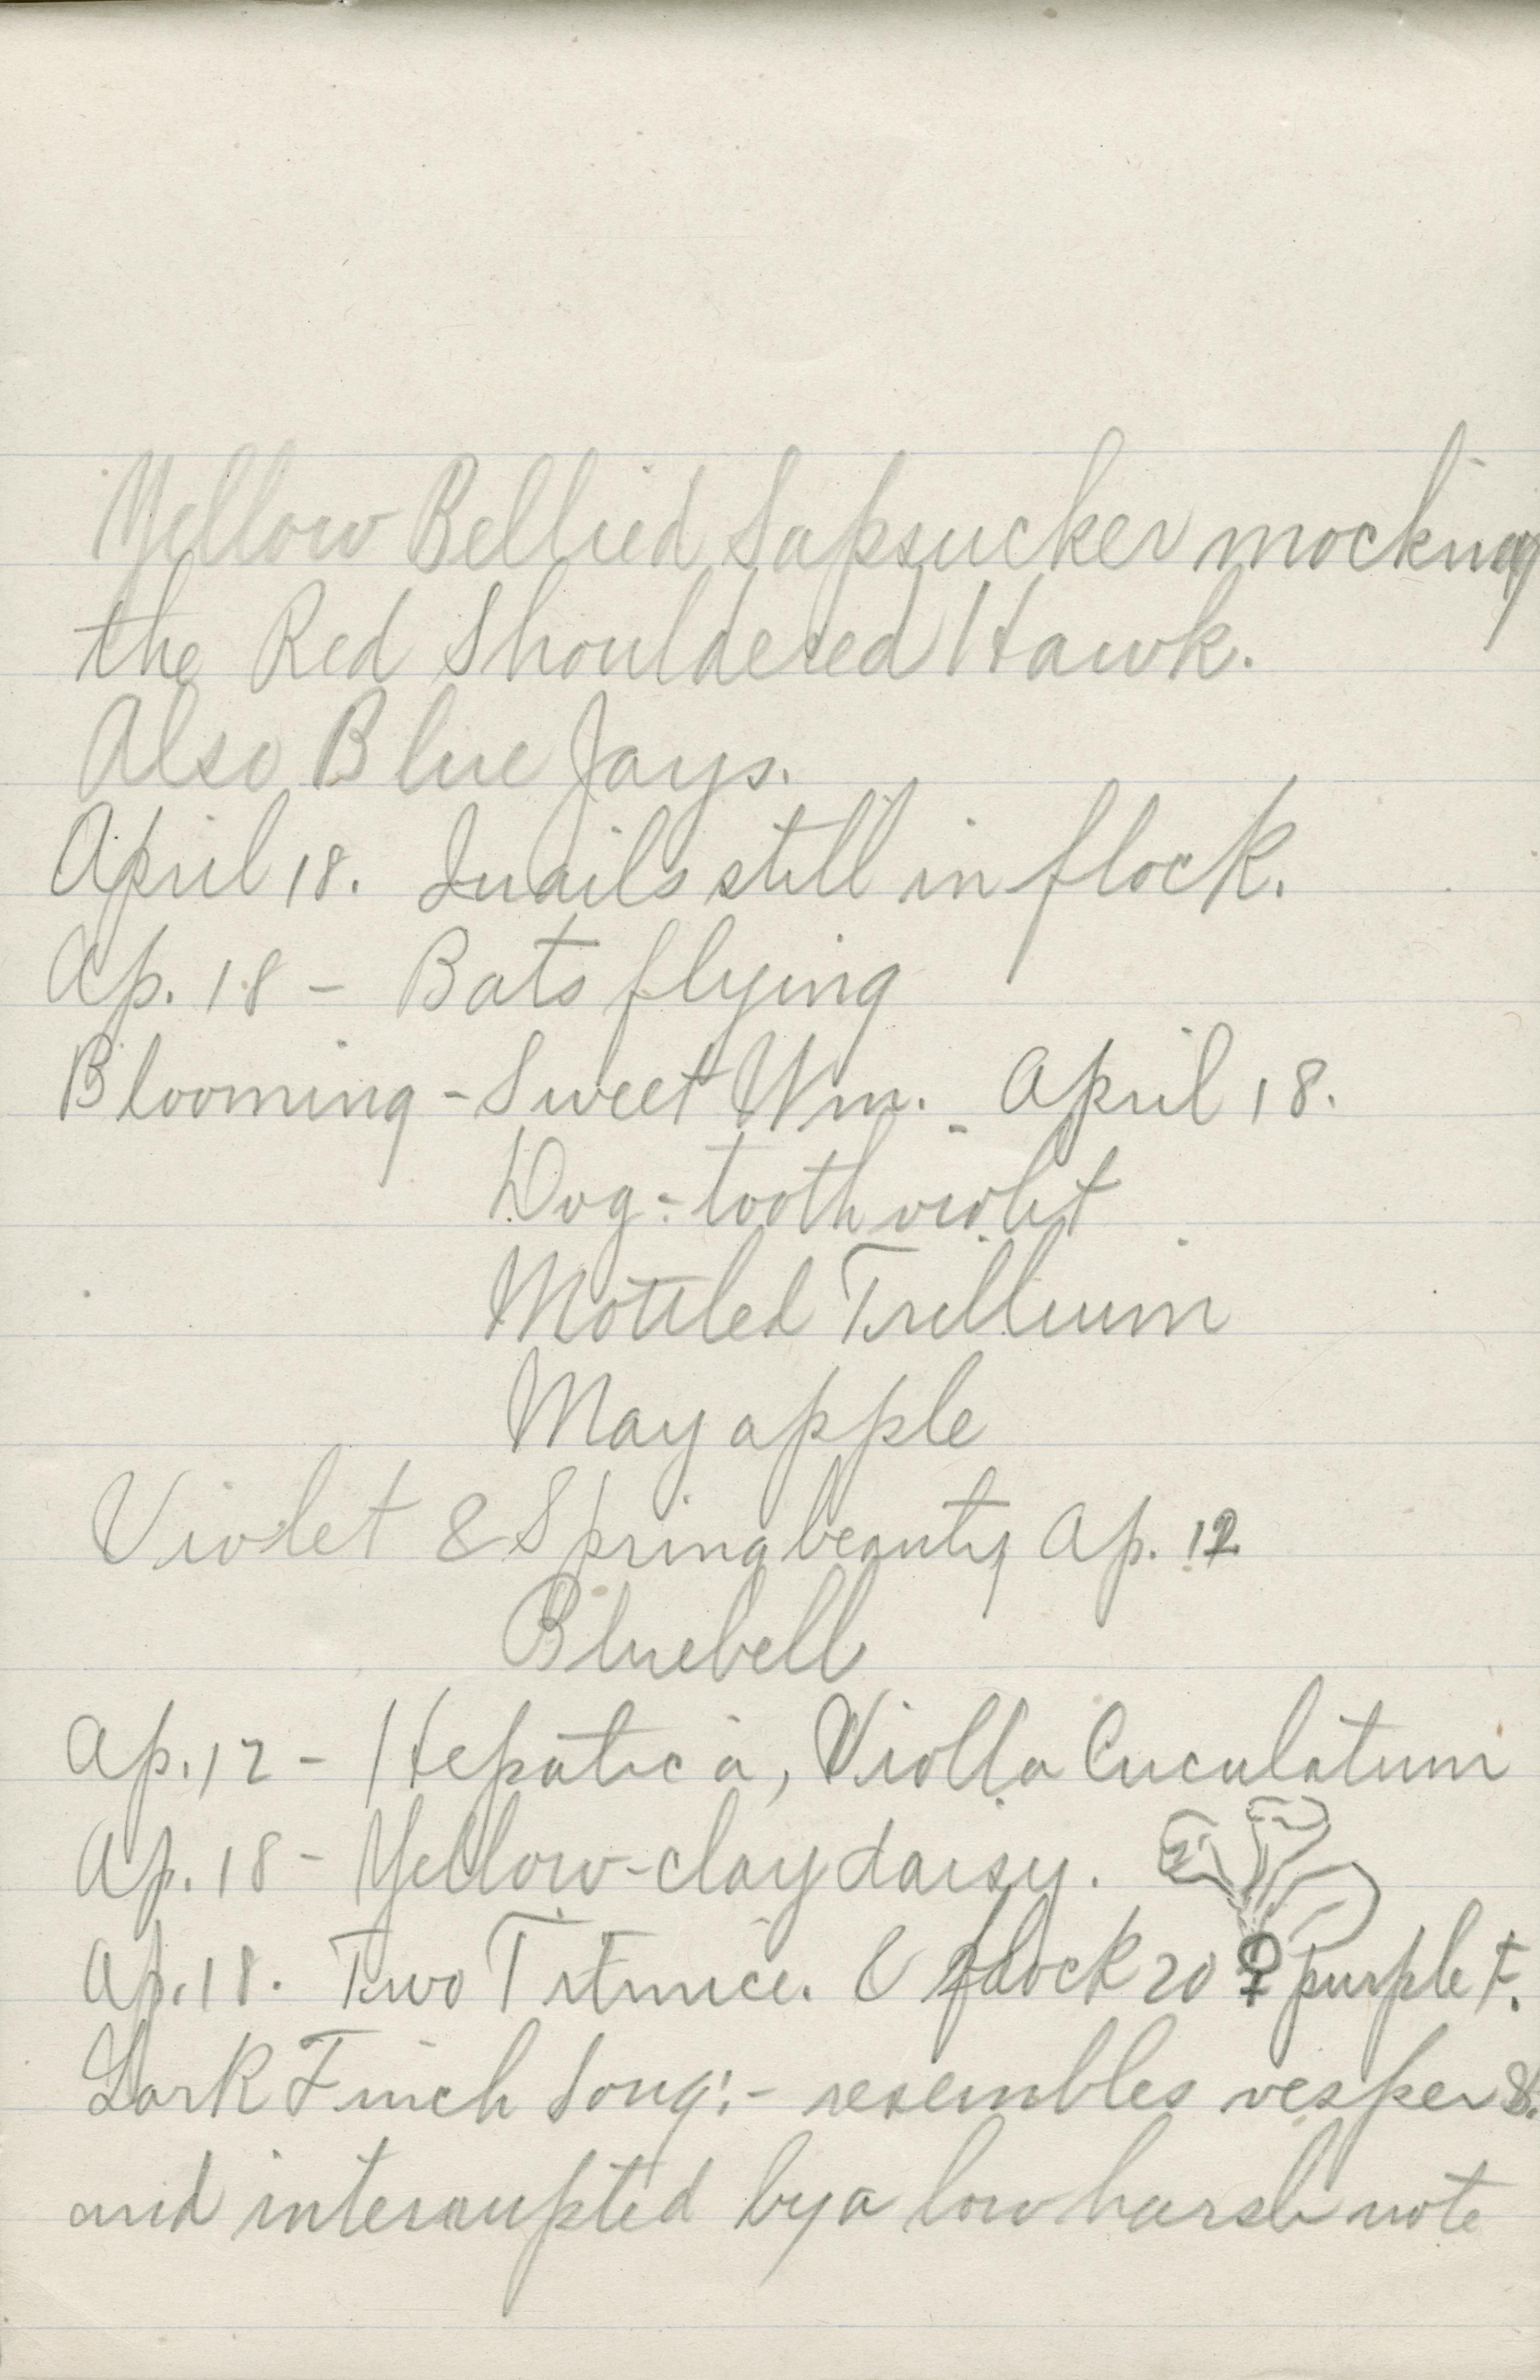 Yellow Bellied Sapsucker mocking
the Red Shouldered Hawk.
Also Blue Jays.
April 18. Quails still in flock.
Ap. 18 - Bats flying
Blooming - Sweet Wm. - April 18.
Dog-tooth violet
Mottled Trillium
May apple
Violet & Spring beauty Ap. 12
Bluebell
Ap. 12 - Hepatica, Violla Cuculatum
Ap. 18 - Yellow-clay daisy.
Ap. 18. Two Titmice. & flock 20 ♀ purple f.
Lark Finch Song:- resembles vesper S.
and interaupted by a low harsh note